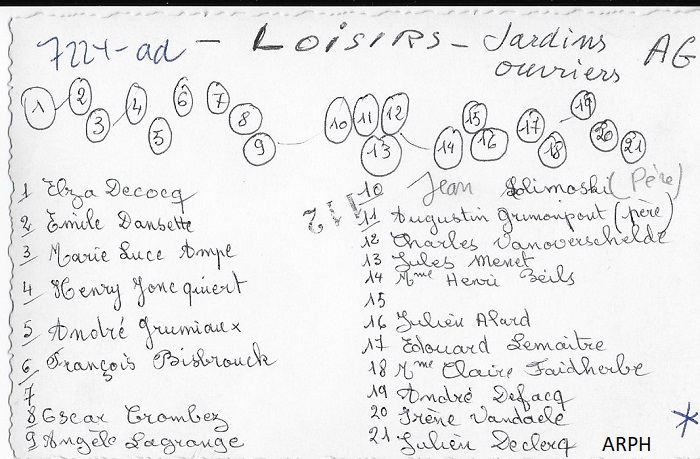 7224-ad - LOISIRS - Jardins ouvriers AG
1 2 3 4 5 6 7 8 9 10 11 12 13 14 15 16 17 18 19 20 21
1 Elza Decocq
2 Emile Dansette
3 Marie Luce Ampe
4 Henry Joncquiert
5 André Grumiaux
6 François Bisbrouck
7
8 Oscar Trombez
9 Angèle Lagrange
10 Jean Solimoski (Père)
11 Augustin Grimonpont (père)
12 Charles Vanoverschelde
13 Jules Menet
14 Mme Henri Béils
15
16 Julien Alard
17 Edouard Lemaitre
18 Mme Claire Faidherbe
19 André Defacq
20 Irène Vandaele
21 Julien Declercq
ARPH